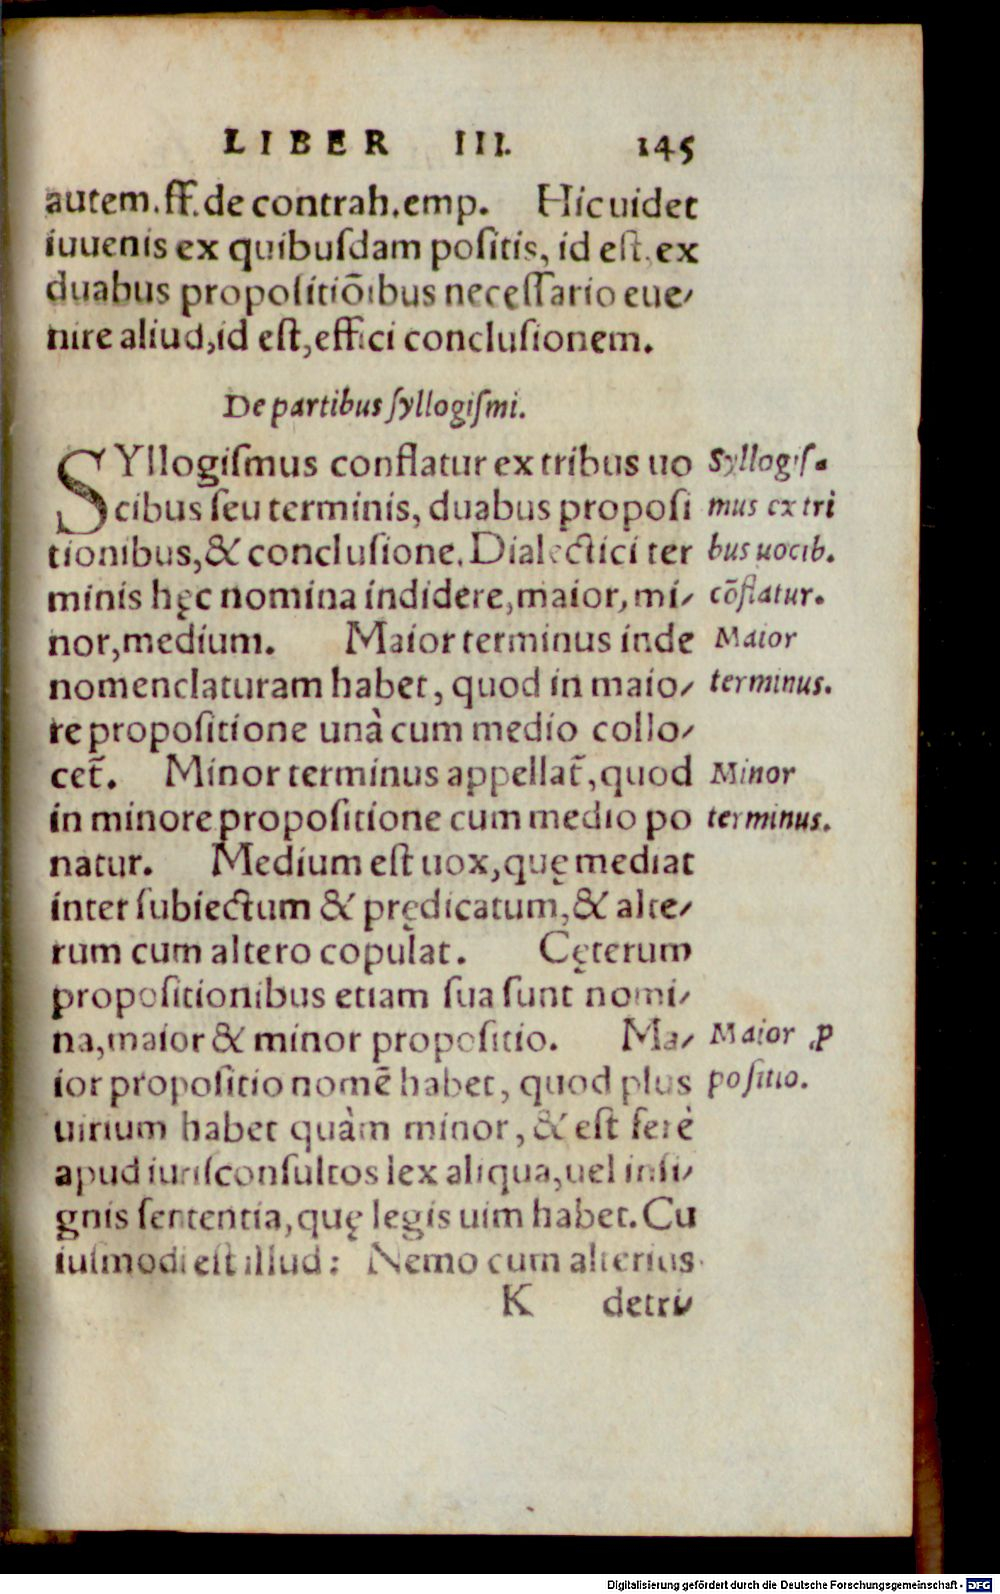 LIBER III. 145
autem.ff.de contrah.emp. Hic uidet
iuuenis ex quibuſdam poſitis, id eſt, ex
duabus propoſitiõibus neceſſario eue⸗
nire aliud,id eſt,effici concluſionem.
De partibus ſyllogiſmi.
SYllogiſmus conflatur ex tribus uo
cibus ſeu terminis, duabus propoſi
tionibus,& concluſione. Dialectici ter
minis hęc nomina indidere,maior, mi⸗
nor,medium. Maior terminus inde
nomenclaturam habet, quod in maio⸗
re propoſitione unà cum medio collo⸗
cet̃. Minor terminus appellat̃,quod
in minore propoſitione cum medio po
natur. Medium eſt uox,quę mediat
inter ſubiectum & prędicatum,& alte⸗
rum cum altero copulat. Cęterum
propoſitionibus etiam ſua ſunt nomi⸗
na,maior & minor propoſitio. Ma⸗
ior propoſitio nomẽ habet, quod plus
uirium habet quàm minor, & eſt ferè
apud iuriſconſultos lex aliqua,uel inſi⸗
gnis ſententia,quę legis uim habet. Cu
iuſmodi eſt illud: Nemo cum alterius
K detri⸗
Syllogiſ⸗
mus ex tri
bus uocib.
cõflatur.
Maior
terminus.
Minor
terminus.
Maior ꝓ
poſitio.
Digitalisierung gefördert durch die Deutsche Forschungsgemeinschaft - DFG